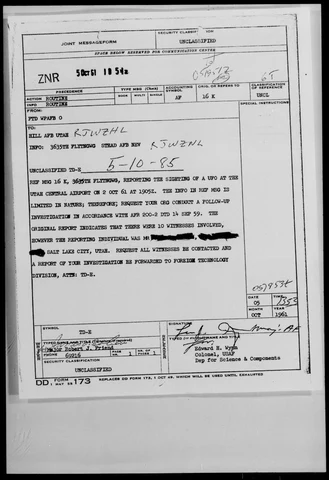 JOINT MESSAGEFORM
SECURITY CLASSIFICATION
UNCLASSIFIED
SPACE BELOW RESERVED FOR COMMUNICATION CENTER
ZNR 5 Oct 61 18 54z
PRECEDENCE
TYPE MSG (Check)
ACCOUNTING SYMBOL
ORIG. OR REFERS TO
CLASSIFICATION OF REFERENCE
ACTION ROUTINE
BOOK MULTI SINGLE
AF
16 K
UNCL
INFO ROUTINE
FROM:
SPECIAL INSTRUCTIONS
FTD WPAFB O
TO:
HILL AFB UTAH RJWZHL
INFO: 3635TH FLYTNGWG STEAD AFB NEV RJWZNL
UNCLASSIFIED TD-E 5-10-85
REF MSG 16 K, 3635TH FLYTNGWG, REPORTING THE SIGHTING OF A UFO AT THE
UTAH CENTRAL AIRPORT ON 2 OCT 61 AT 1905Z. THE INFO IN REF MSG IS
LIMITED IN NATURE; THEREFORE; REQUEST YOUR ORG CONDUCT A FOLLOW-UP
INVESTIGATION IN ACCORDANCE WITH AFR 200-2 DTD 14 SEP 59. THE
ORIGINAL REPORT INDICATES THAT THERE WERE 10 WITNESSES INVOLVED,
HOWEVER THE REPORTING INDIVIDUAL WAS MR
SALT LAKE CITY, UTAH. REQUEST ALL WITNESSES BE CONTACTED AND
A REPORT OF YOUR INVESTIGATION BE FORWARDED TO FOREIGN TECHNOLOGY
DIVISION, ATTN: TD-E.
DATE TIME
05
MONTH YEAR
OCT 1961
SYMBOL
TD-E
SIGNATURE
TYPED NAME AND TITLE
Major Robert J. Friend
PHONE 69216 PAGE NR. 1 NR. OF PAGES 1
TYPED (or stamped) NAME AND TITLE
Edward H. Wynn
Colonel, USAF
Dep for Science & Components
SECURITY CLASSIFICATION
UNCLASSIFIED
DD FORM 173
REPLACES DD FORM 173, 1 OCT 49, WHICH WILL BE USED UNTIL EXHAUSTED